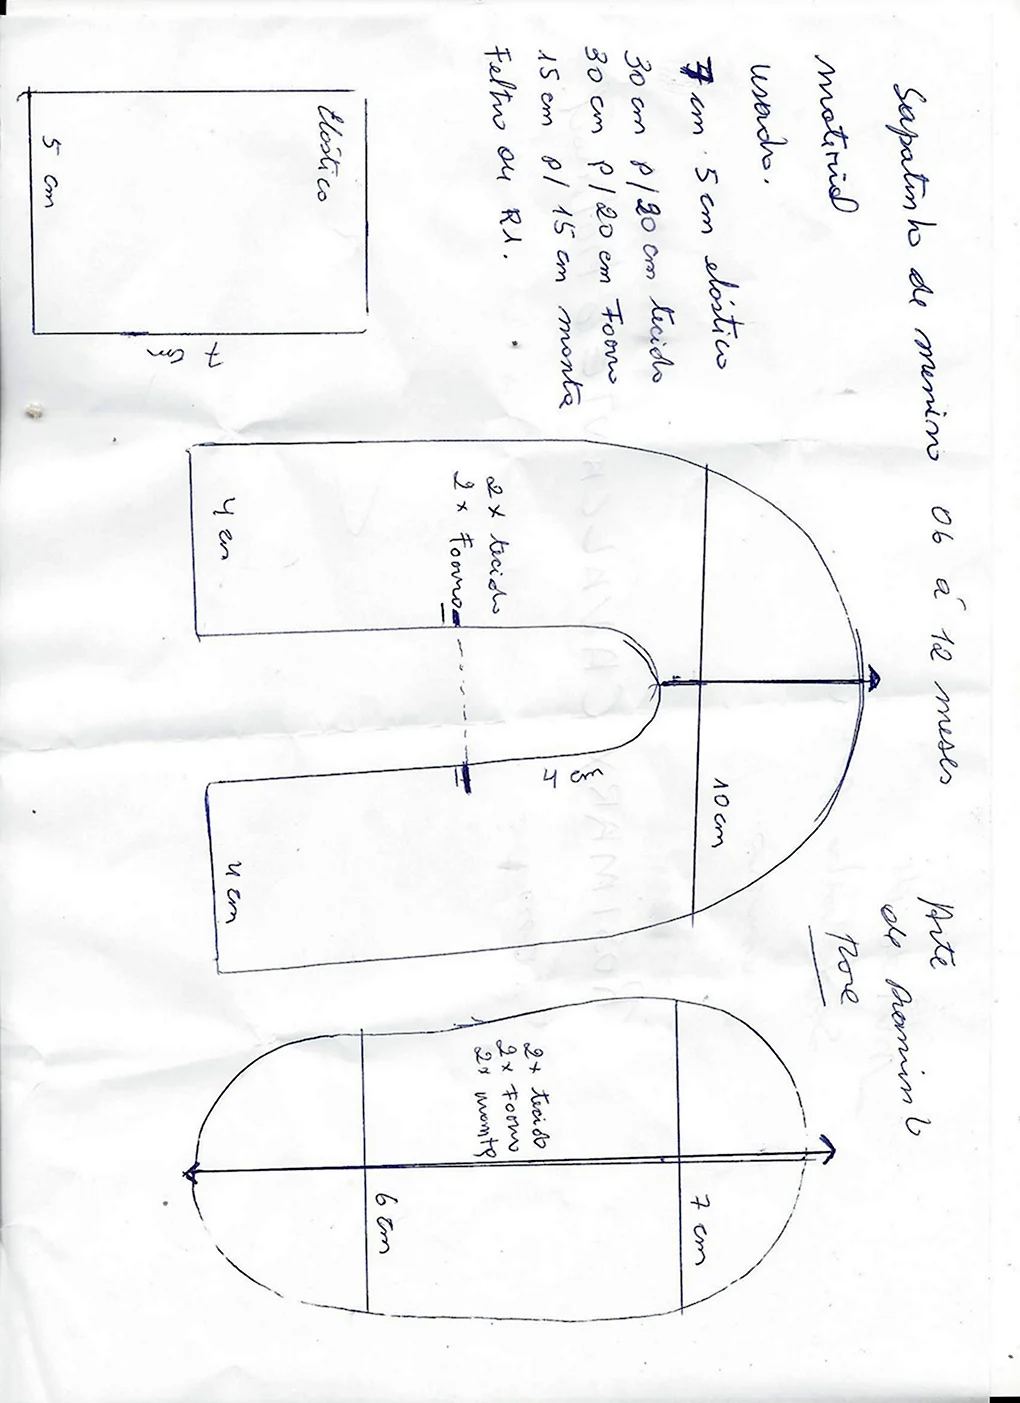 Sapatinho de menino 06 á 12 meses
material
usado.
7 cm . 5 cm elástico
30 cm p/ 20 cm tecido
30 cm p/ 20 cm Forro
15 cm p/ 15 cm manta
Feltro ou R1.
Arte
de
Rore
Elástico
5 cm
7 cm
2x tecido
2x Forro
4 cm
4 cm
4 cm
10 cm
2x tecido
2x Forro
2x manta
6 cm
7 cm